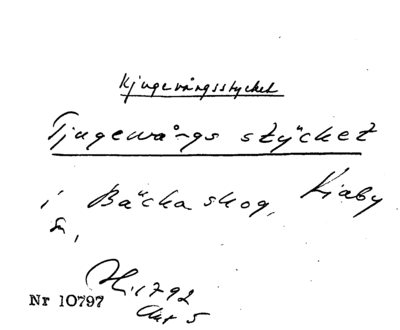 Kjugevångsstycket
Tjugewångs stÿcket
i Bäckaskog, Kiaby
sn,
Hi 1792
Akt 5
Nr 10797